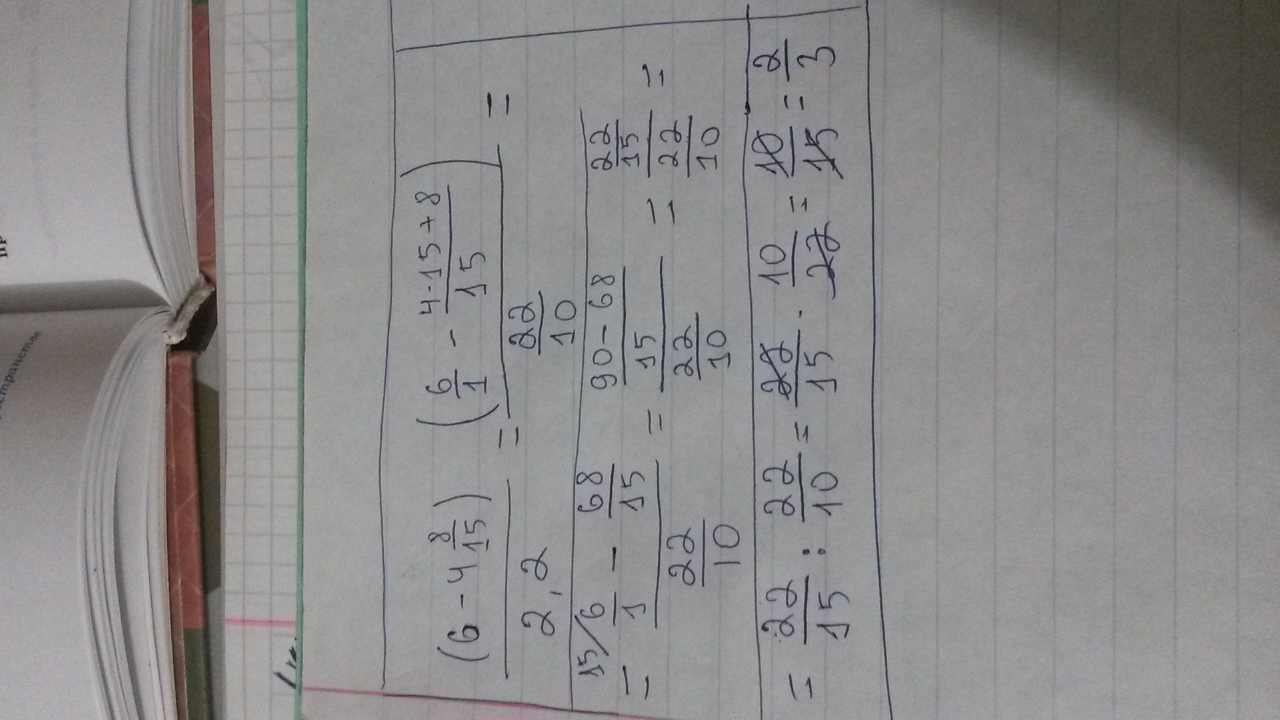 (6 - 4 8/15) / 2,2 = (6/1 - (4·15+8)/15) / (22/10) =
= (15/ 6/1 - 68/15) / (22/10) = ((90-68)/15) / (22/10) = (22/15) / (22/10) =
= 22/15 : 22/10 = 22/15 · 10/22 = 10/15 = 2/3